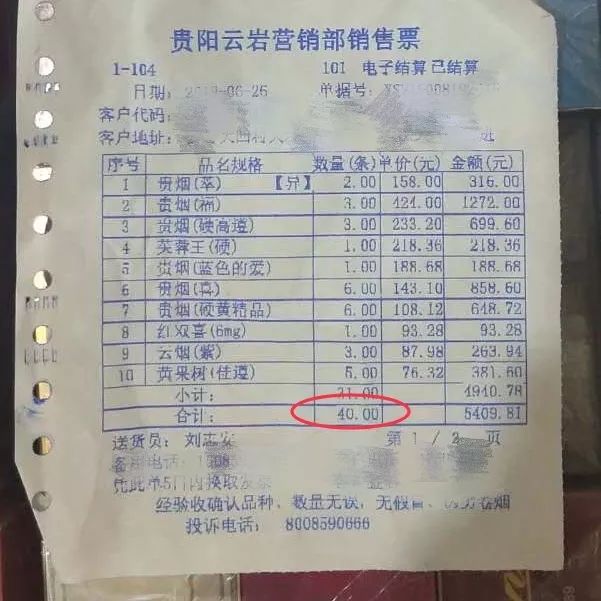 贵阳云岩营销部销售票
1-104 101 电子结算 已结算
日期: 2019-06-26 单据号:
客户代码:
客户地址:
序号 品名规格 数量(条) 单价(元) 金额(元)
1 贵烟(萃) 【异】 2.00 158.00 316.00
2 贵烟(福) 3.00 424.00 1272.00
3 贵烟(硬高遵) 3.00 233.20 699.60
4 芙蓉王(硬) 1.00 218.36 218.36
5 贵烟(蓝色的爱) 1.00 188.68 188.68
6 贵烟(喜) 6.00 143.10 858.60
7 贵烟(硬黄精品) 6.00 108.12 648.72
8 红双喜(6mg) 1.00 93.28 93.28
9 云烟(紫) 3.00 87.98 263.94
10 黄果树(佳遵) 5.00 76.32 381.60
小计: 31.00 4940.78
合计: 40.00 5409.81
送货员: 刘志安 第 1 / 2 页
客服电话:
凭此单5日内换取发票
经验收确认品种、数量无误,无假冒、卷烟
投诉电话: 8008590666